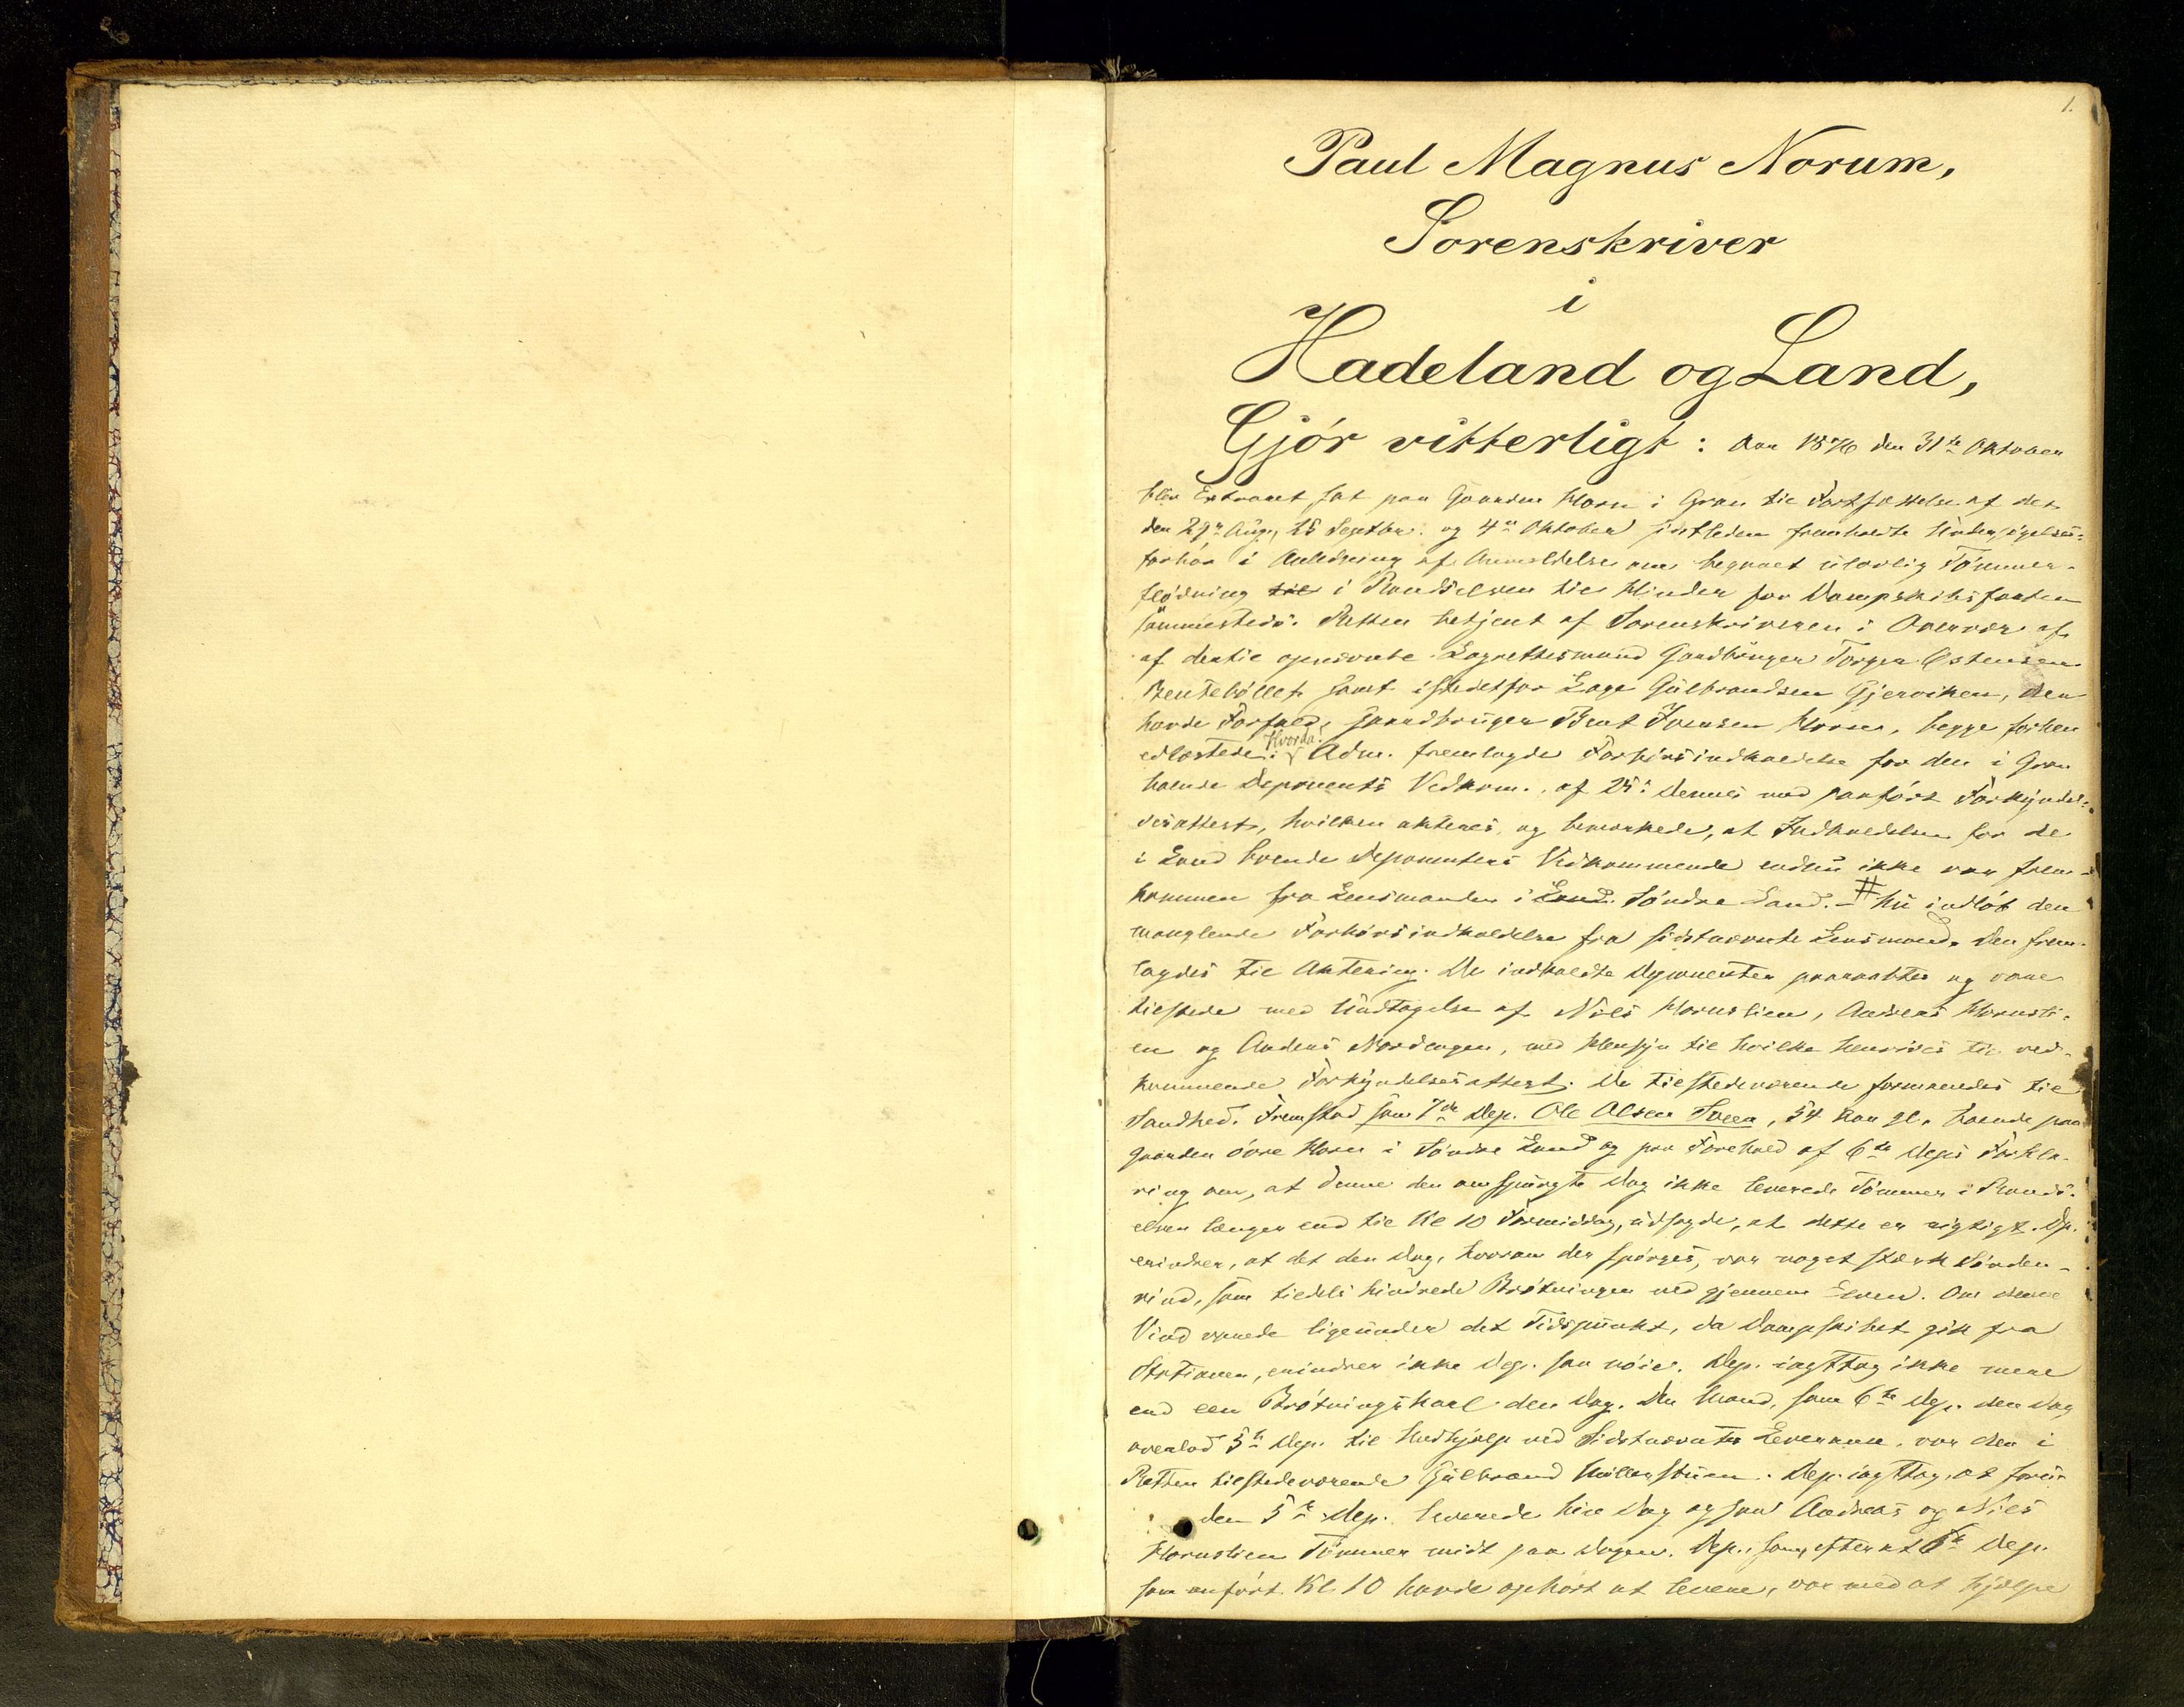 1.
Paul Magnus Norum,
Sorenskriver
i
Hadeland og Land,
Gjór vitterligt: Aar 1876 den 31te Oktober
blev Extraret sat paa Gaarden Horn i Gran til Fortsættelse af det
den 29de Aug., 25 Septbr. og 4de Oktober sidstleden fremholdte Undersøgelses-
forhør i Anledning af Anmeldelse om begaaet ulovlig Tømmer-
flødning til i Randselven til Hinder for Dampskibsfarten
sammesteds. Retten betjent af Sorenskriveren i Overvær af
af dertil opnævnte Lagrettesmænd Gaardbruger Torger Østensen
Bentebøllet samt istedetfor Lage Gulbrandsen Gjerviken, der
havde Forfald, Gaardbruger Bent Iversen Horn, begge forhen
edfæstede. Hvorda! Adm. fremlagde Forhørsindkaldelse for den i Gran
boende Deponents Vedkom., af 25. dennes med paaført Forkyndel-
sesattest, hvilken akteres, og bemærkede, at Indkaldelsen for de
i Land boende Deponenters Vedkommende endnu ikke var frem-
kommen fra Lensmanden i Land. Søndre Land. - # Nu indløb den
manglende Forhørsindkaldelse fra sidstnævnte Lensmand. Den frem-
lagdes til Aktering. De indkaldte Deponenter paaraabtes og vare
tilstede med Undtagelse af Niels Hornslien, Andreas Hornsli-
en og Anders Nordengen, med Hensyn til hvilke henvises til ved-
kommende Forkyndelsesattest. De tilstedeværende formanedes til
Sandhed. Fremstod som 7de Dep. Ole Olsen Sveen, 54 Aar gl., boende paa
Gaarden øvre Horn i Søndre Land og paa Forehold af 6te Deps Forkla-
ring om, at denne den omspurgte Dag ikke leverede Tømmer i Rands-
elven længer end til Kl 10 Formiddag, udsagde, at dette er rigtigt. Dp.
erindrer, at det den Dag, hvorom der spørges, var noget stærk Sønden-
vind, som tildels hindrede Brøtningen ned gjennem Elven. Om denne
Vind varede ligeunder det Tidspunkt, da Dampskibet gik fra
Stationen, erindrer ikke Dep. saa nøie. Dep. iagttog ikke mere
end een Brøtningskarl den Dag. Den Mand, som 6te Dep. den Dag
overlod 5te Dep. til Medhjælp ved Sidstnævntes Leverance, var den i
Retten tilstedeværende Gulbrand Møllerstuen. Dep. iagttog, at foru-
den 5te Dep. leverede hin Dag ogsaa Andreas og Niels
Hornslien Tømmer midt paa Dagen. Dep., som, efterat 6te Dep.
som anført Kl. 10 havde ophørt at levere, var med at hjælpe